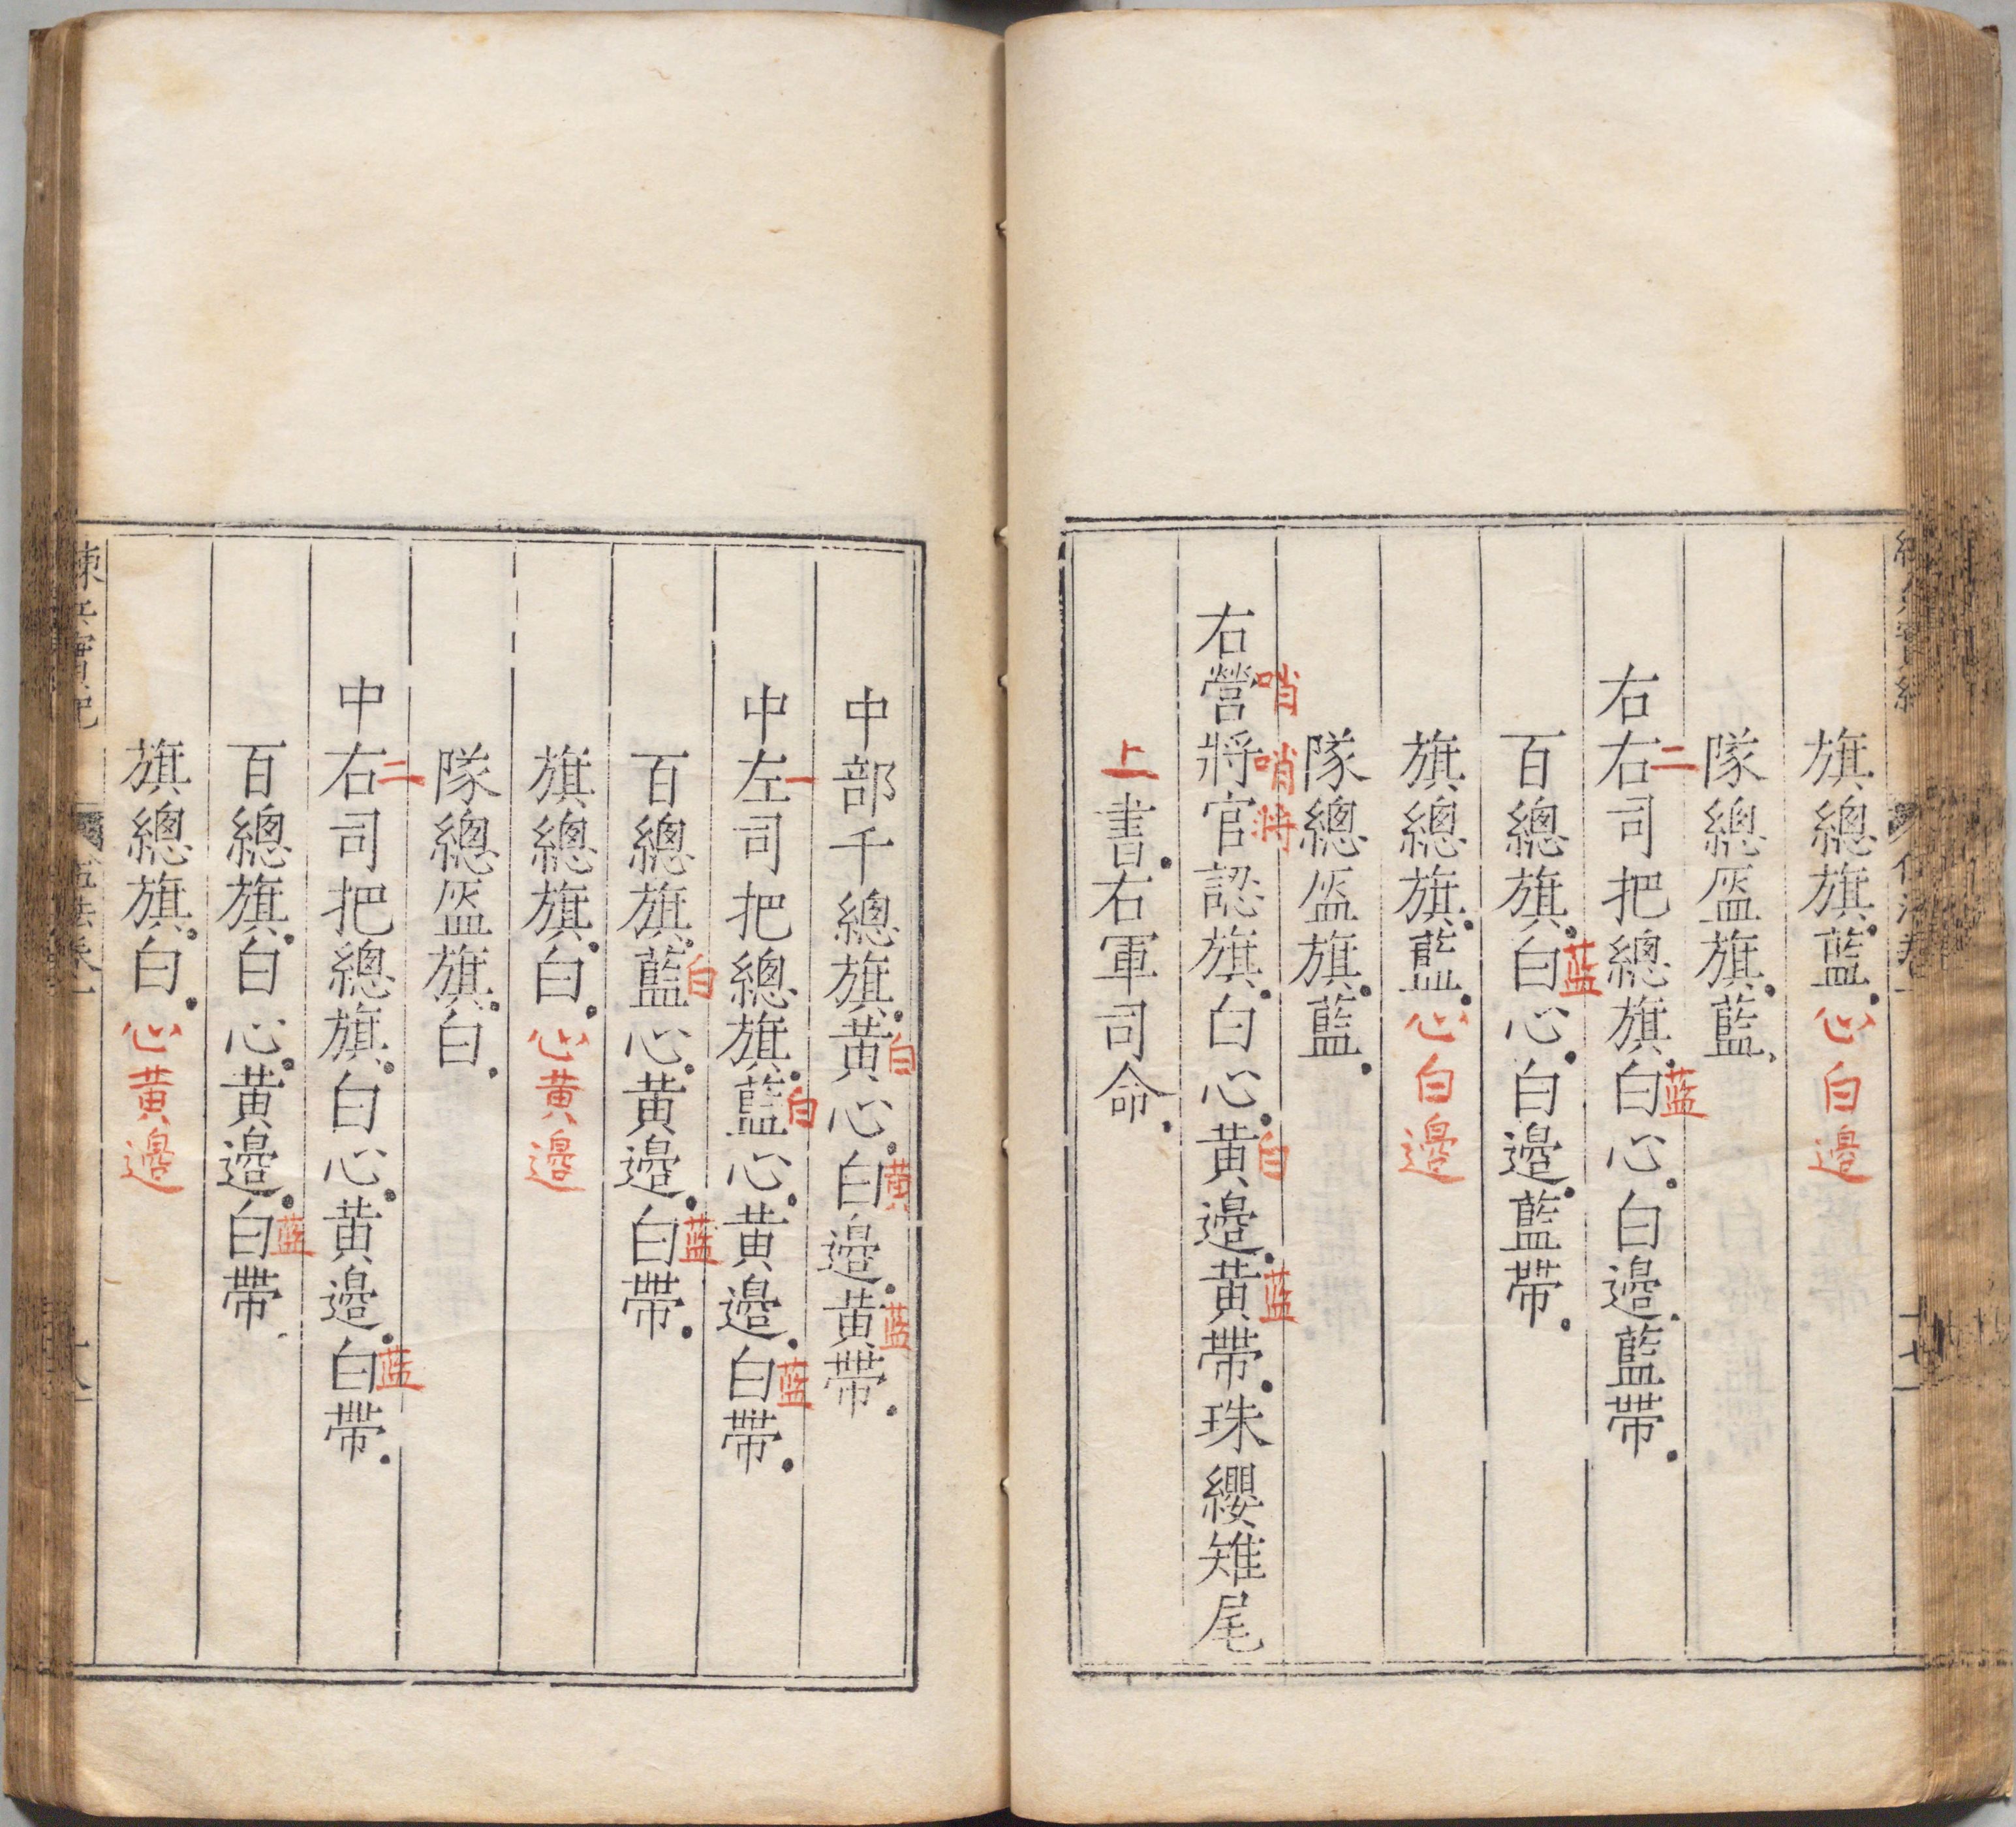 旗總旗.藍.心白邊
隊總盔旗.藍.
右右司把總旗.白心.白邊.藍帶.
二 藍
百總旗.白心.白邊.藍帶.
藍
旗總旗.藍.心白邊
隊總盔旗.藍.
右營將官認旗.白心.黃邊.黃帶.珠纓雉尾
哨 哨將 白 藍
上書.右軍司命.
中部千總旗.黃心.白邊.黃帶.
白 黃 藍
中左司把總旗.藍心.黃邊.白帶.
一 白 藍
百總旗.藍心.黃邊.白帶.
白 藍
旗總旗.白.心黃邊
隊總盔旗.白.
中右司把總旗.白心.黃邊.白帶.
二 藍
百總旗.白心.黃邊.白帶.
藍
旗總旗.白.心黃邊